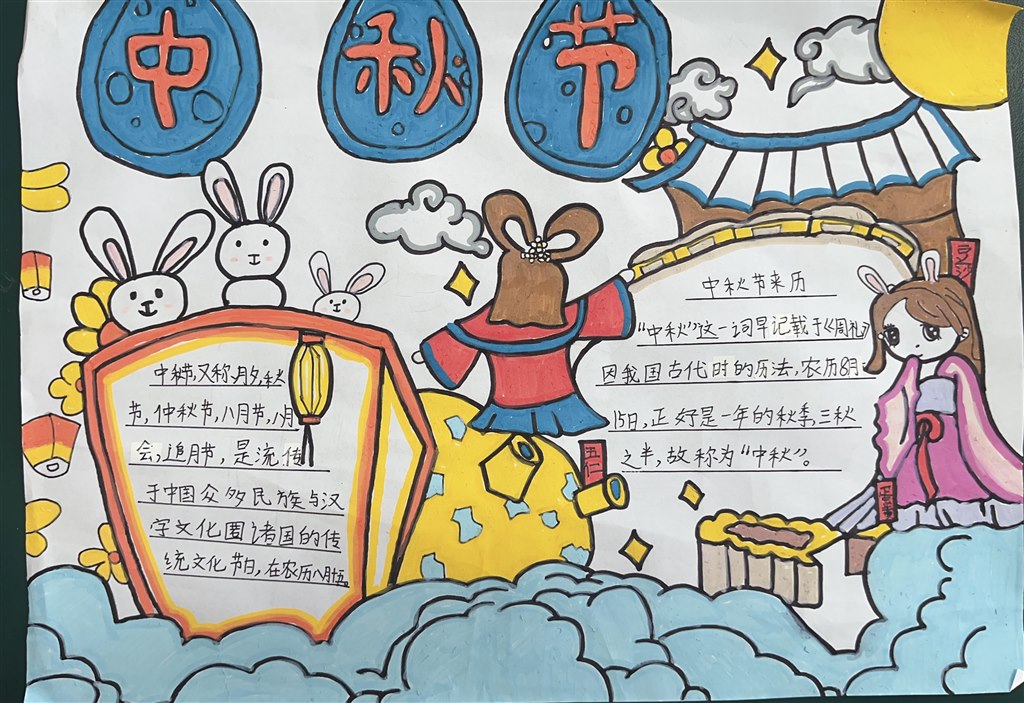 中秋节
中秋节,又称月夕,秋
节,仲秋节,八月节,八月
会,追月节,是流传
于中国众多民族与汉
字文化圈诸国的传
统文化节日,在农历八月十五。
中秋节来历
“中秋”这一词早记载于《周礼》
因我国古代时的历法,农历8月
15日,正好是一年的秋季,三秋
之半,故称为“中秋”。
五仁